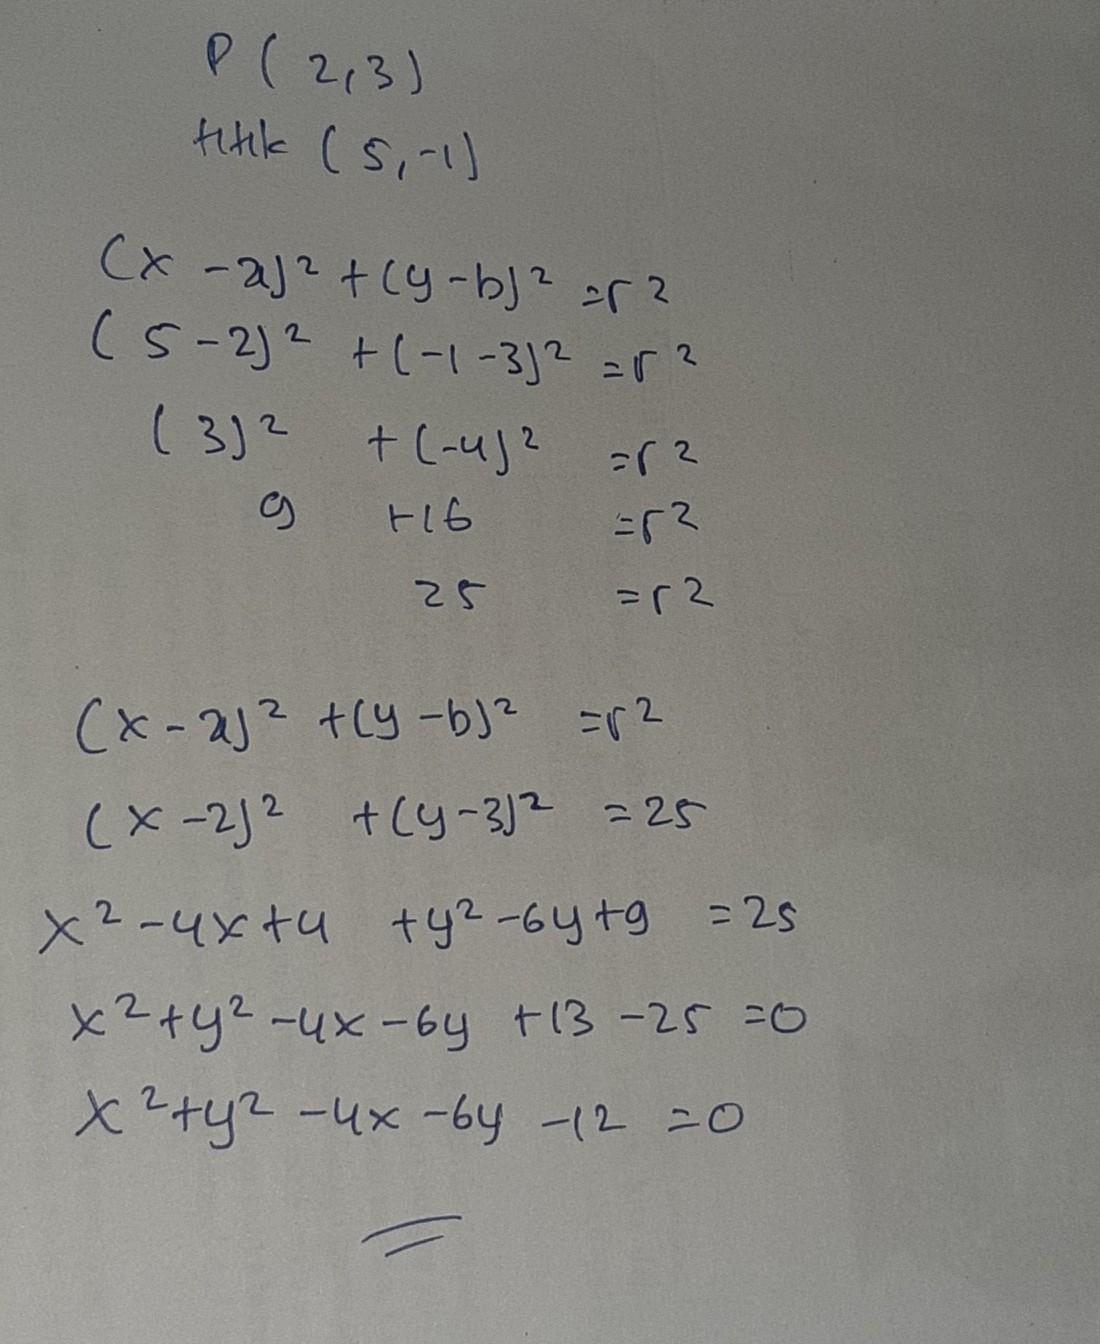 P ( 2,3 )
titik ( 5,-1)
(x - a)² + (y - b)² = r²
( 5 - 2)² + (-1 - 3)² = r²
( 3)² + (-4)² = r²
9 +16 = r²
25 = r²
(x - a)² + (y - b)² = r²
(x - 2)² + (y - 3)² = 25
x² - 4x + 4 + y² - 6y + 9 = 25
x² + y² - 4x - 6y + 13 - 25 = 0
x² + y² - 4x - 6y - 12 = 0